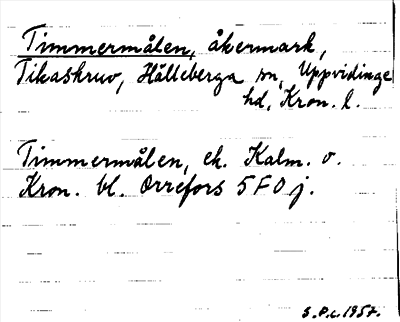 Timmermålen, åkermark,
Tikaskruv, Hälleberga sn, Uppvidinge
hd, Kron. l.
Timmermålen, ek. Kalm. o.
Kron. bl. Orrefors 5F0j.
S.P.c. 1957.